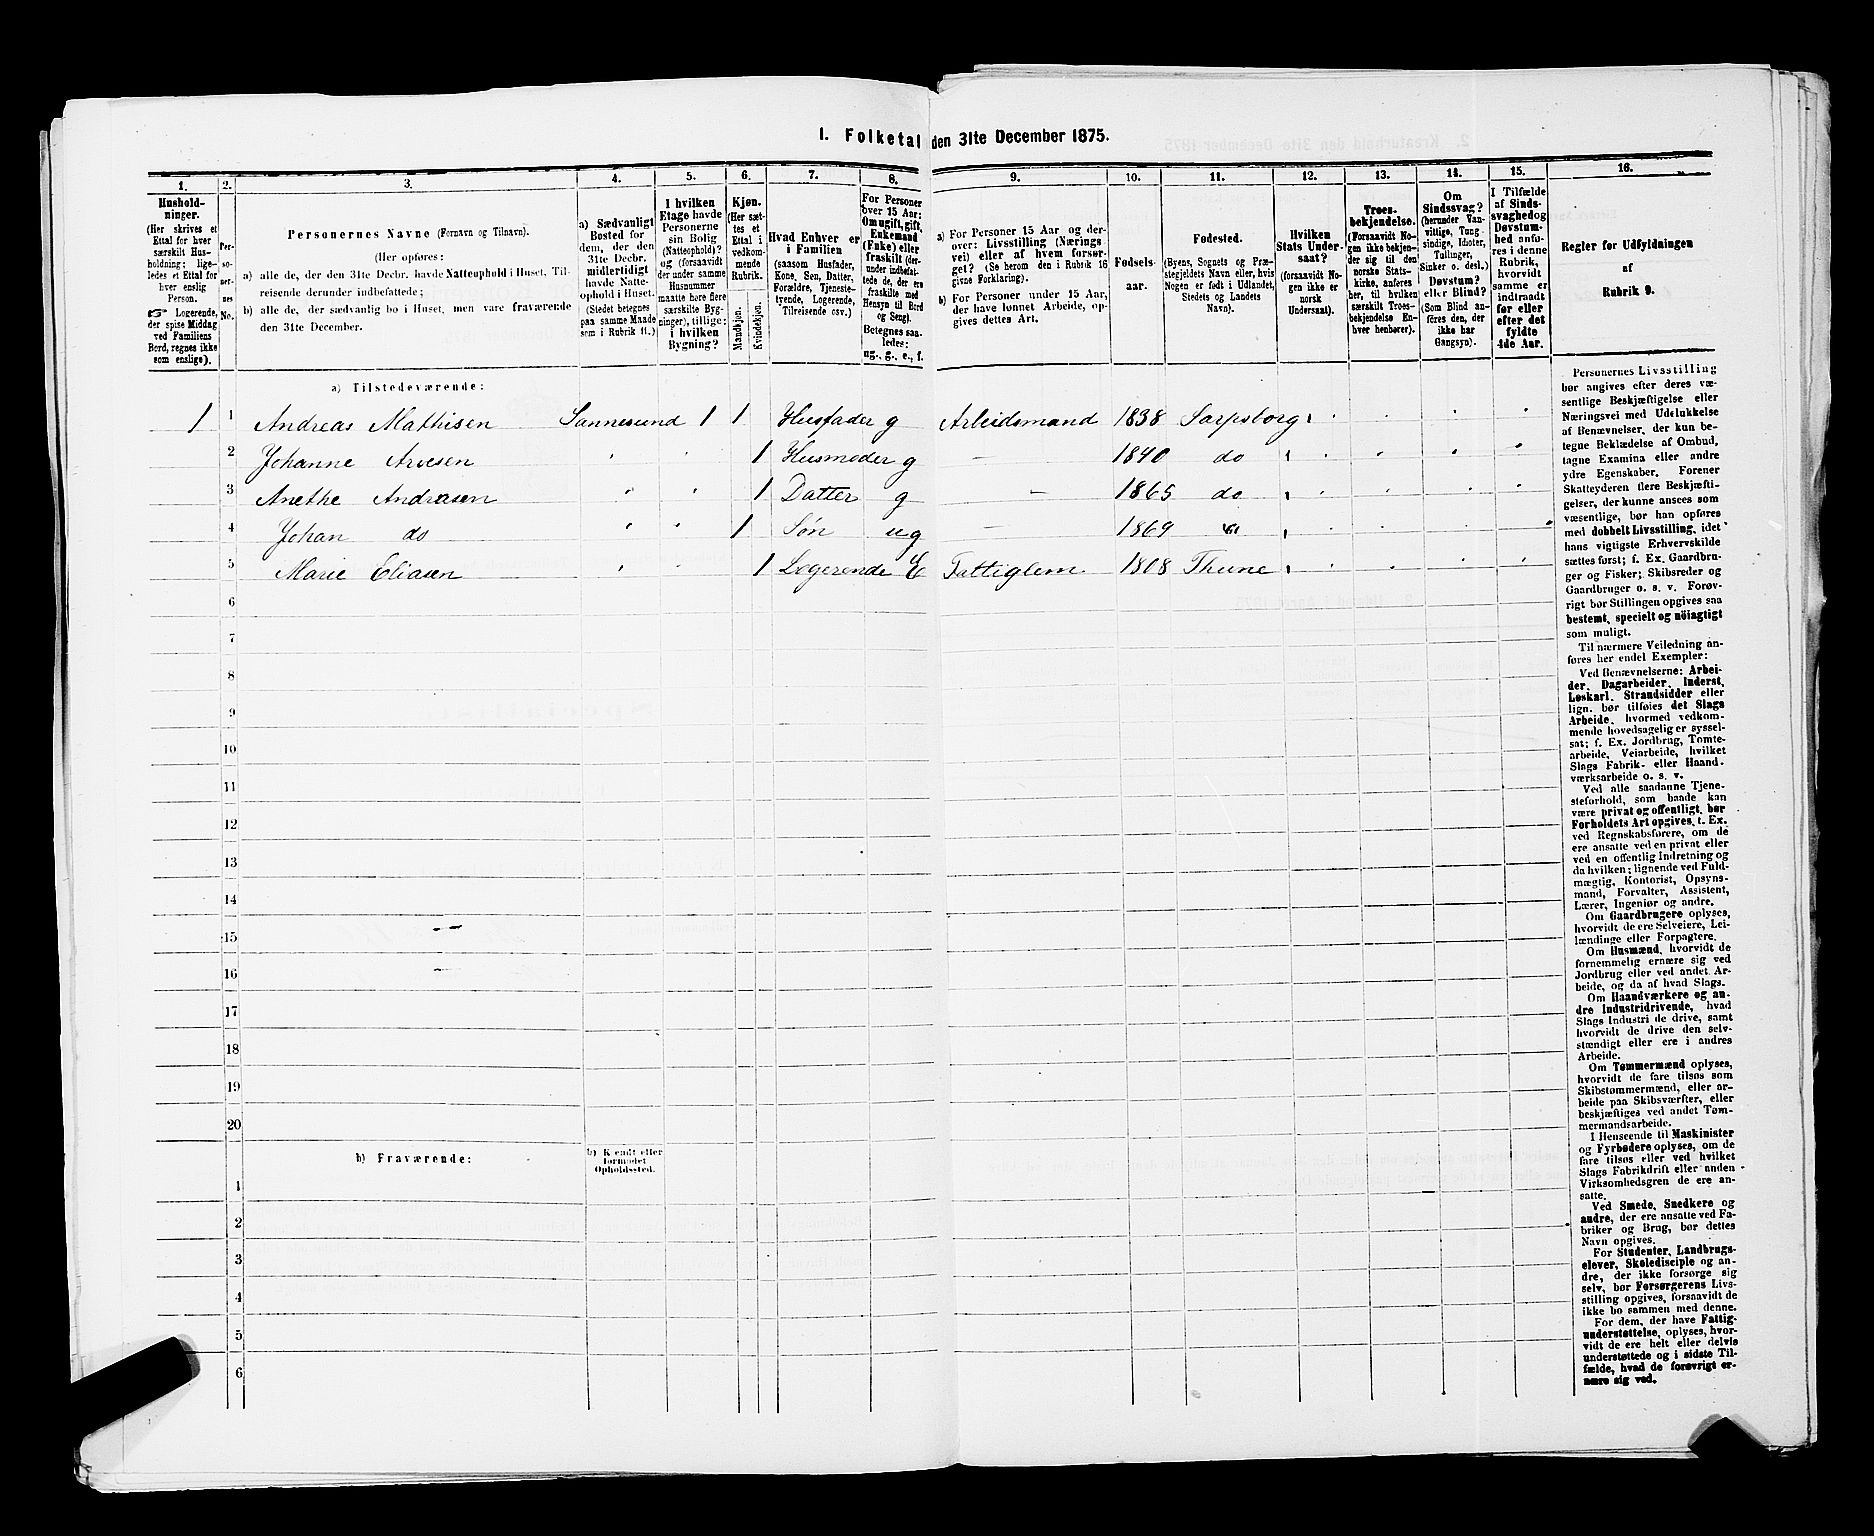 1. Folketal den 31te December 1875.
1. 2. 3. 4. 5. 6. 7. 8. 9. 10. 11. 12. 13. 14. 15. 16.
Hushold-
ninger.
(Her skrives et
Ettal for hver
særskilt Hus-
holdning; lige-
ledes et Ettal for
hver enslig
Person.
☞ Logerende,
der spise Middag
ved Familiens
Bord, regnes ikke
som enslige).
Per-
so-
ner-
nes
No.
Personernes Navne (Fornavn og Tilnavn).
(Her opføres:
a) alle de, der den 31te Decbr. havde Natteophold i Huset, Til-
reisende derunder indbefattede;
b) alle de, der sædvanlig bo i Huset, men vare fraværende
den 31te December.
a) Sædvanligt
Bosted for
dem, der den
31te Decbr.
midlertidigt
havde Natte-
ophold i Huset.
(Stedet betegnes
paa samme Maade
som i Rubrik 11.)
I hvilken
Etage havde
Personerne
sin Bolig
(Natteophold)?
og (forsaavidt
der under samme
Husnummer
maatte høre flere
særskilte Byg-
ninger), tillige:
i hvilken
Bygning?
Kjøn.
(Her sæt-
tes et
Ettal i
vedkom-
mende
Rubrik.
Mandkjøn.
Kvindekjøn.
Hvad Enhver er
i Familien
(saasom Husfader,
Kone, Søn, Datter,
Forældre, Tjeneste-
tyende, Logerende,
Tilreisende osv.)
For Personer
over 15 Aar:
Om ugift, gift,
Enkemand
(Enke) eller
fraskilt (der-
under indbefat-
tede de, der ere
fraskilte med
Hensyn til Bord
og Seng).
Betegnes saa-
ledes:
ug., g., e., f.
a) For Personer 15 Aar og der-
over: Livsstilling (Nærings-
vei) eller af hvem forsør-
get? (Se herom den i Rubrik 16
givne Forklaring).
b) For Personer under 15 Aar,
der have lønnet Arbeide, op-
gives dettes Art.
Fødsels-
aar.
Fødested.
(Byens, Sognets og Præ-
stegjeldets Navn eller, hvis
Nogen er født i Udlandet,
Stedets og Landets
Navn).
Hvilken
Stats Under-
saat?
(forsaavidt No-
gen ikke er
norsk
Undersaat).
Troes-
bekjendelse.
(Forsaavidt No-
gen ikke bekjen-
der sig til den
norske Stats-
kirke, anføres
her, til hvilken
særskilt Troes-
bekjendelse En-
hver henhører).
Om
Sindssvag?
(herunder Van-
vittige, Tung-
sindige, Idioter,
Tullinger,
Sinker o. desl.)
Døvstum?
eller Blind?
(Som Blind an-
føres den, der
ikke har
Gangsyn).
I Tilfælde
af Sinds-
svaghed og
Døvstum-
hed anfø-
res i denne
Rubrik,
hvorvidt
samme er
indtraadt
før eller
efter det
fyldte
4de Aar.
Regler for Udfyldningen
af
Rubrik 9.
a) Tilstedeværende:
1 1 Andreas Mathisen Sannesund 1 1 Husfader g Arbeidsmand 1838 Sarpsborg
2 Johanne Arvesen 1 Husmoder g — 1840 do
3 Anethe Andreasen 1 Datter g — 1865 do
4 Johan do 1 Søn ug — 1869
5 Marie Eliasen 1 Logerende E Fattiglem 1808 Thune
6
7
8
9
10
11
12
13
14
15
16
17
18
19
20
b) Fraværende: b) Kendt eller
formodet
Opholdssted.
1
2
3
4
5
6
Personernes Livsstilling
bør angives efter deres væ-
sentlige Beskjæftigelse eller
Næringsvei med Udelukkelse
af Benævnelser, der kun be-
tegne Beklædelse af Ombud,
tagne Examina eller andre
ydre Egenskaber. Forener
Skatteyderen flere Beskjæfti-
gelser, der kunne ansees som
væsentlige, bør han opføres
med dobbelt Livsstilling, idet
hans vigtigste Erhvervskilde
sættes først; f. Ex. Gaardbru-
ger og Fisker; Skibsreder og
Gaardbruger o. s. v. Forøv-
rigt bør Stillingen opgives saa
bestemt, specielt og nöiagtigt
som muligt.
Til nærmere Veiledning an-
føres her endel Exempler:
Ved Benævnelserne: Arbei-
der, Dagarbeider, Inderst,
Løskarl, Strandsidder eller
lign. bør tilføies det Slags
Arbeide, hvormed vedkom-
mende hovedsagelig er syssel-
sat; f. Ex. Jordbrug, Tomte-
arbeide, Veiarbeide, hvilket
Slags Fabrik- eller Haand-
værksarbeide o. s. v.
Ved alle saadanne Tjene-
steforhold, som baade kan
være privat og offentligt, bør
Forholdets Art opgives, t. Ex.
ved Regnskabsførere, om de
ere ansatte ved en privat eller
ved en offentlig Indretning og
da hvilken; lignende ved Fuld-
mægtig, Kontorist, Opsyns-
mand, Forvalter, Assistent,
Lærer, Ingeniør og andre.
Om Gaardbrugere oplyses,
hvorvidt de ere Selveiere, Lei-
lændinge eller Forpagtere.
Om Husmænd, hvorvidt de
fornemmelig ernære sig ved
Jordbrug eller ved andet Ar-
beide, og da af hvad Slags.
Om Haandværkere og an-
dre Industridrivende, hvad
Slags Industri de drive, samt
hvorvidt de drive den selv-
stændigt eller ere i andres
Arbeide.
Om Tømmermænd oplyses,
hvorvidt de fare tilsøs som
Skibstømmermænd, eller ar-
beide paa Skibsværfter, eller
beskjæftiges ved andet Tøm-
mermandsarbeide.
I Henseende til Maskinister
og Fyrbødere oplyses, om de
fare tilsøs eller ved hvilket
Slags Fabrikdrift eller anden
Virksomhedsgren de ere an-
satte.
Ved Smede, Snedkere og
andre, der ere ansatte ved Fa-
briker og Brug, bør dettes
Navn opgives.
For Studenter, Landbrugs-
elever, Skoledisciple og an-
dre, der ikke forsørge sig
selv, bør Forsørgerens Livs-
stilling opgives, forsaavidt de
ikke bo sammen med denne.
For dem, der have Fattig-
understøttelse, oplyses, hvor-
vidt de ere helt eller delvis
understøttede og i sidste Til-
fælde, hvad de forøvrigt er-
nære sig ved.